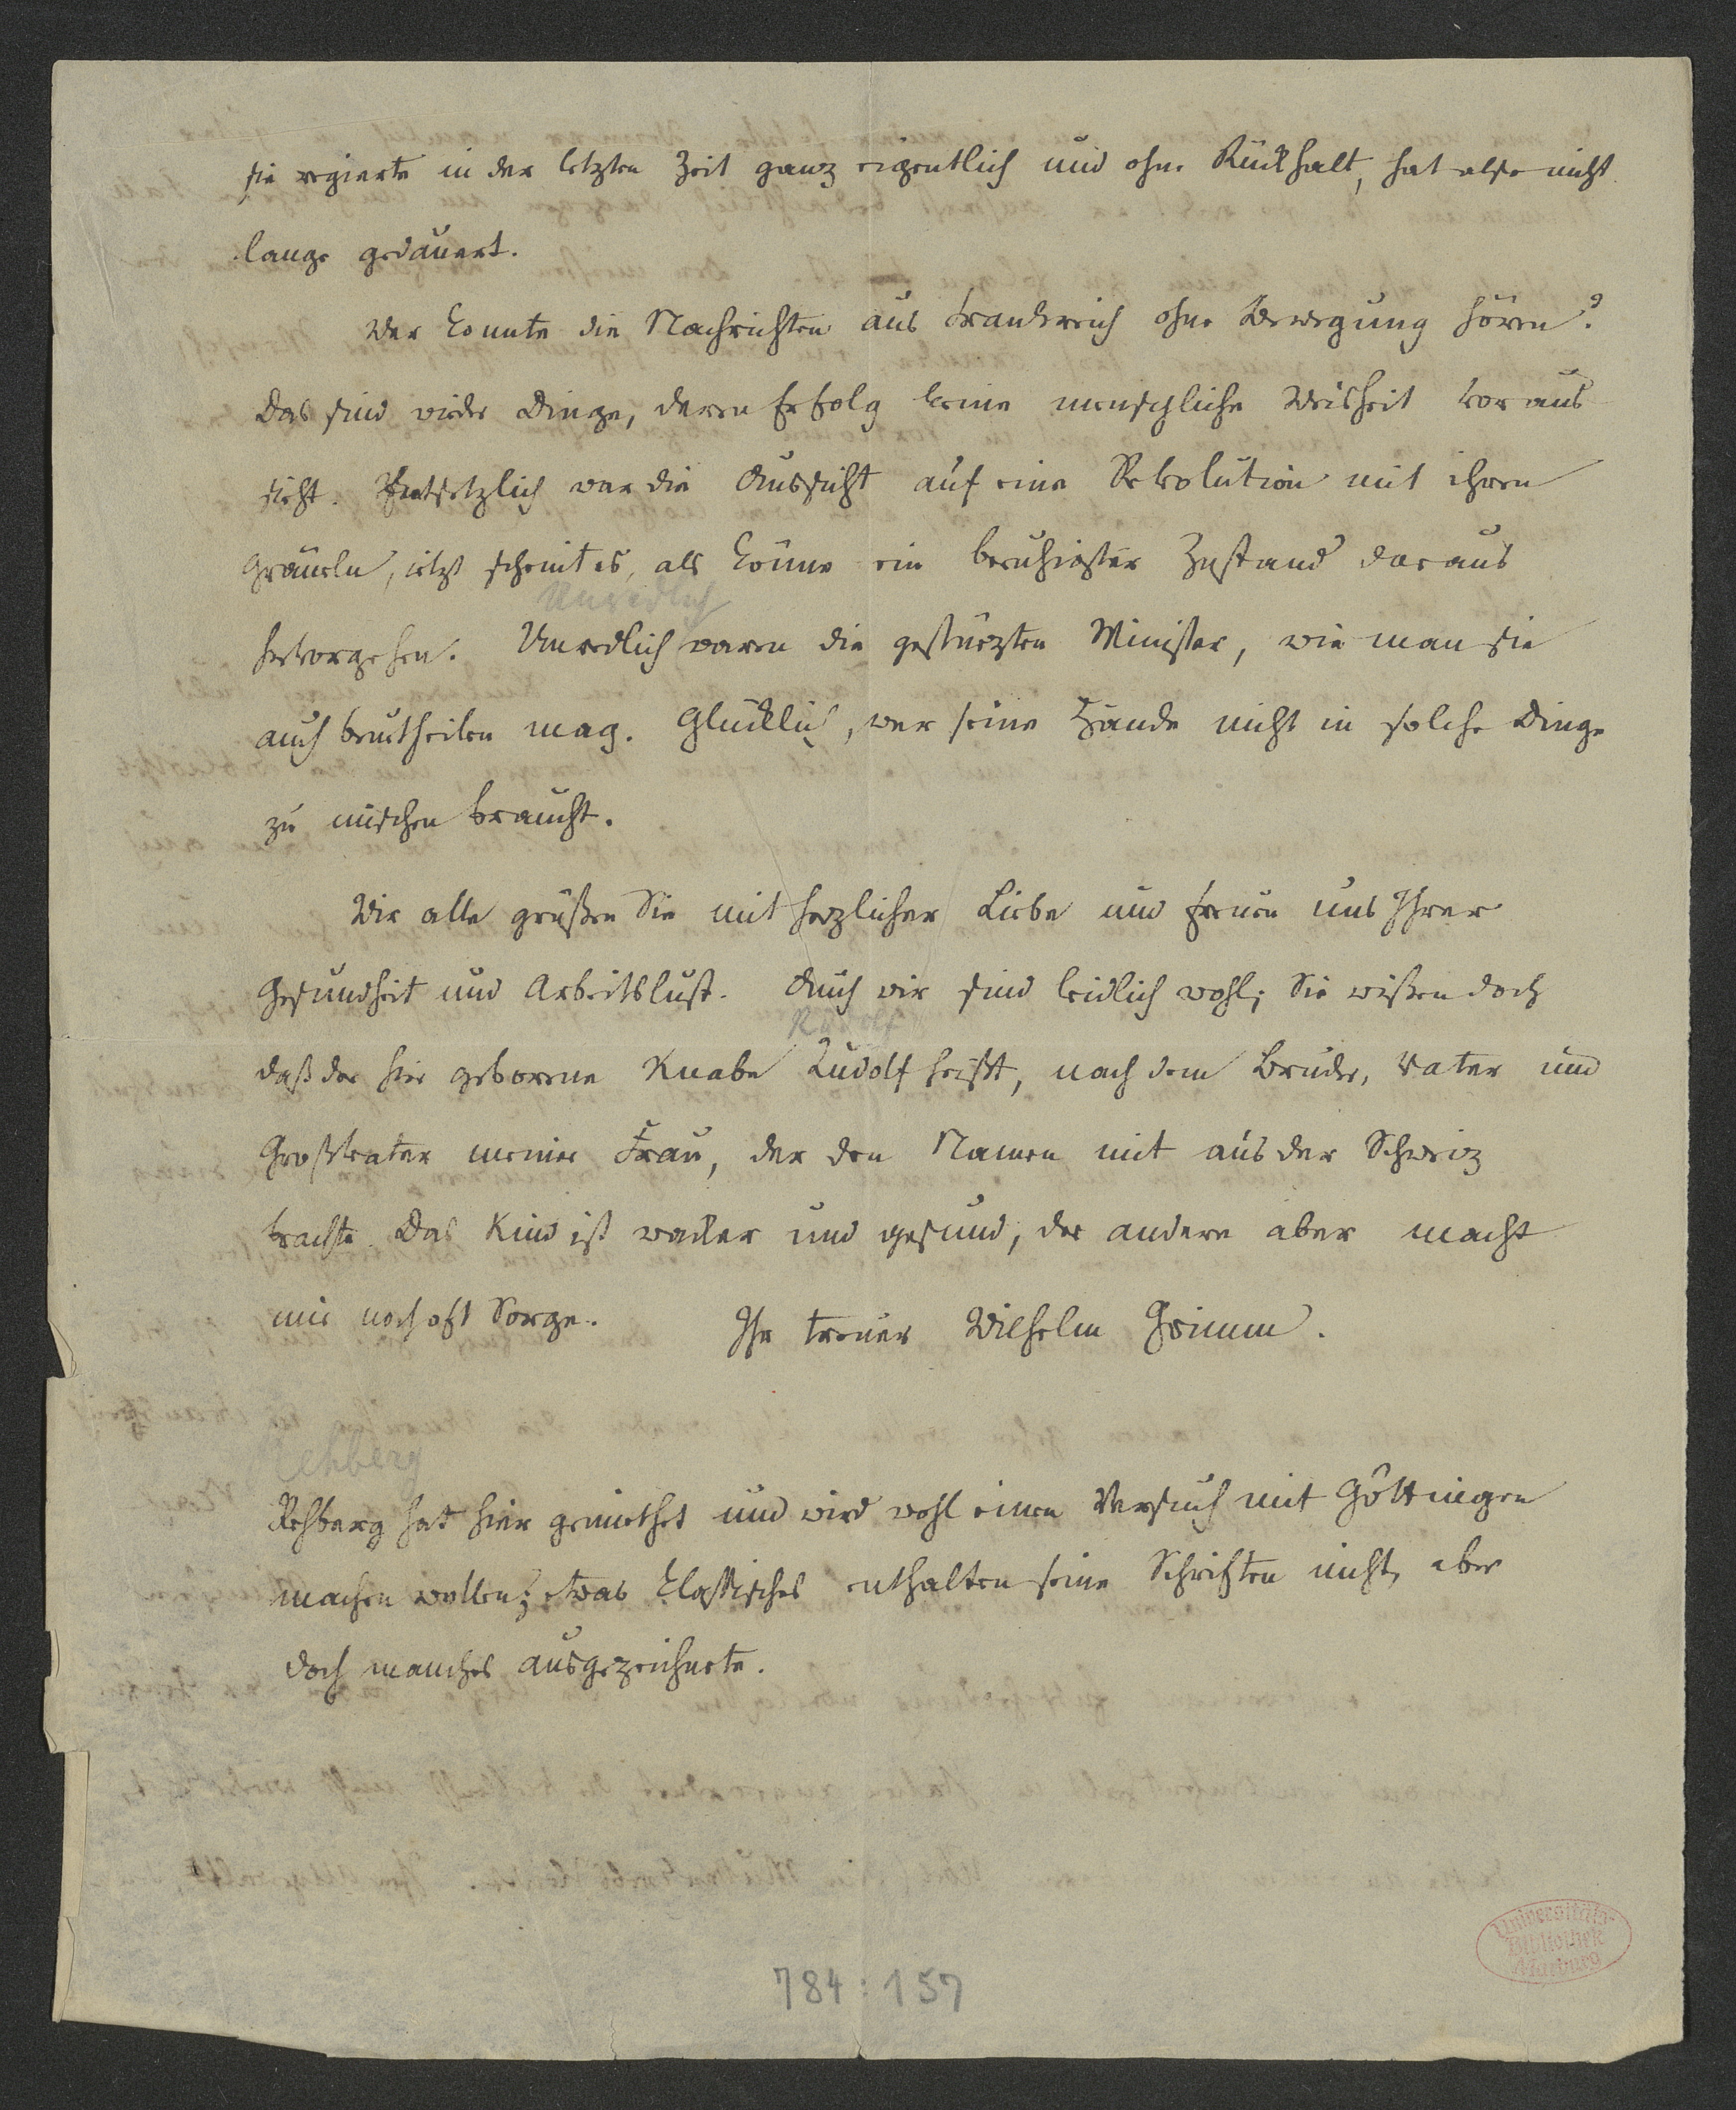 sie regierte in der letzten Zeit ganz eigentlich und ohne Rückhalt, hat also nicht
lange gedauert.
Wer konnte die Nachrichten aus Frankreich ohne Bewegung hören?
Das sind wieder Dinge, deren Erfolg keine menschliche Weisheit voraus
sieht. Entsetzlich war die Aussicht auf eine Revolution mit ihren
Gräueln, jetzt scheint es, als könne ein beruhigter Zustand daraus
Unredlich
hervorgehen. Unredlich waren die gestürzten Minister, wie man sie
auch beurtheilen mag. Glücklich, wer seine Hände nicht in solche Dinge
zu mischen braucht.
Wir alle grüßen Sie mit herzlicher Liebe und freuen uns Ihrer
Gesundheit und Arbeitslust. Auch wir sind leidlich wohl; Sie wißen doch
Rudolf
daß der hier geborene Knabe Rudolf heißt, nach dem Bruder, Vater und
Großvater meiner Frau, der den Namen mit aus der Schweiz
brachte. Das Kind ist wacker und gesund, der andere aber macht
mir noch oft Sorge. Ihr treuer Wilhelm Grimm.
Rehberg
Rehberg hat hier gemiethet und wird wohl einen Versuch mit Göttingen
machen wollen; etwas Classisches enthalten seine Schriften nicht, aber
doch manches ausgezeichnete.
Universitäts-
Bibliothek
Marburg
784:157